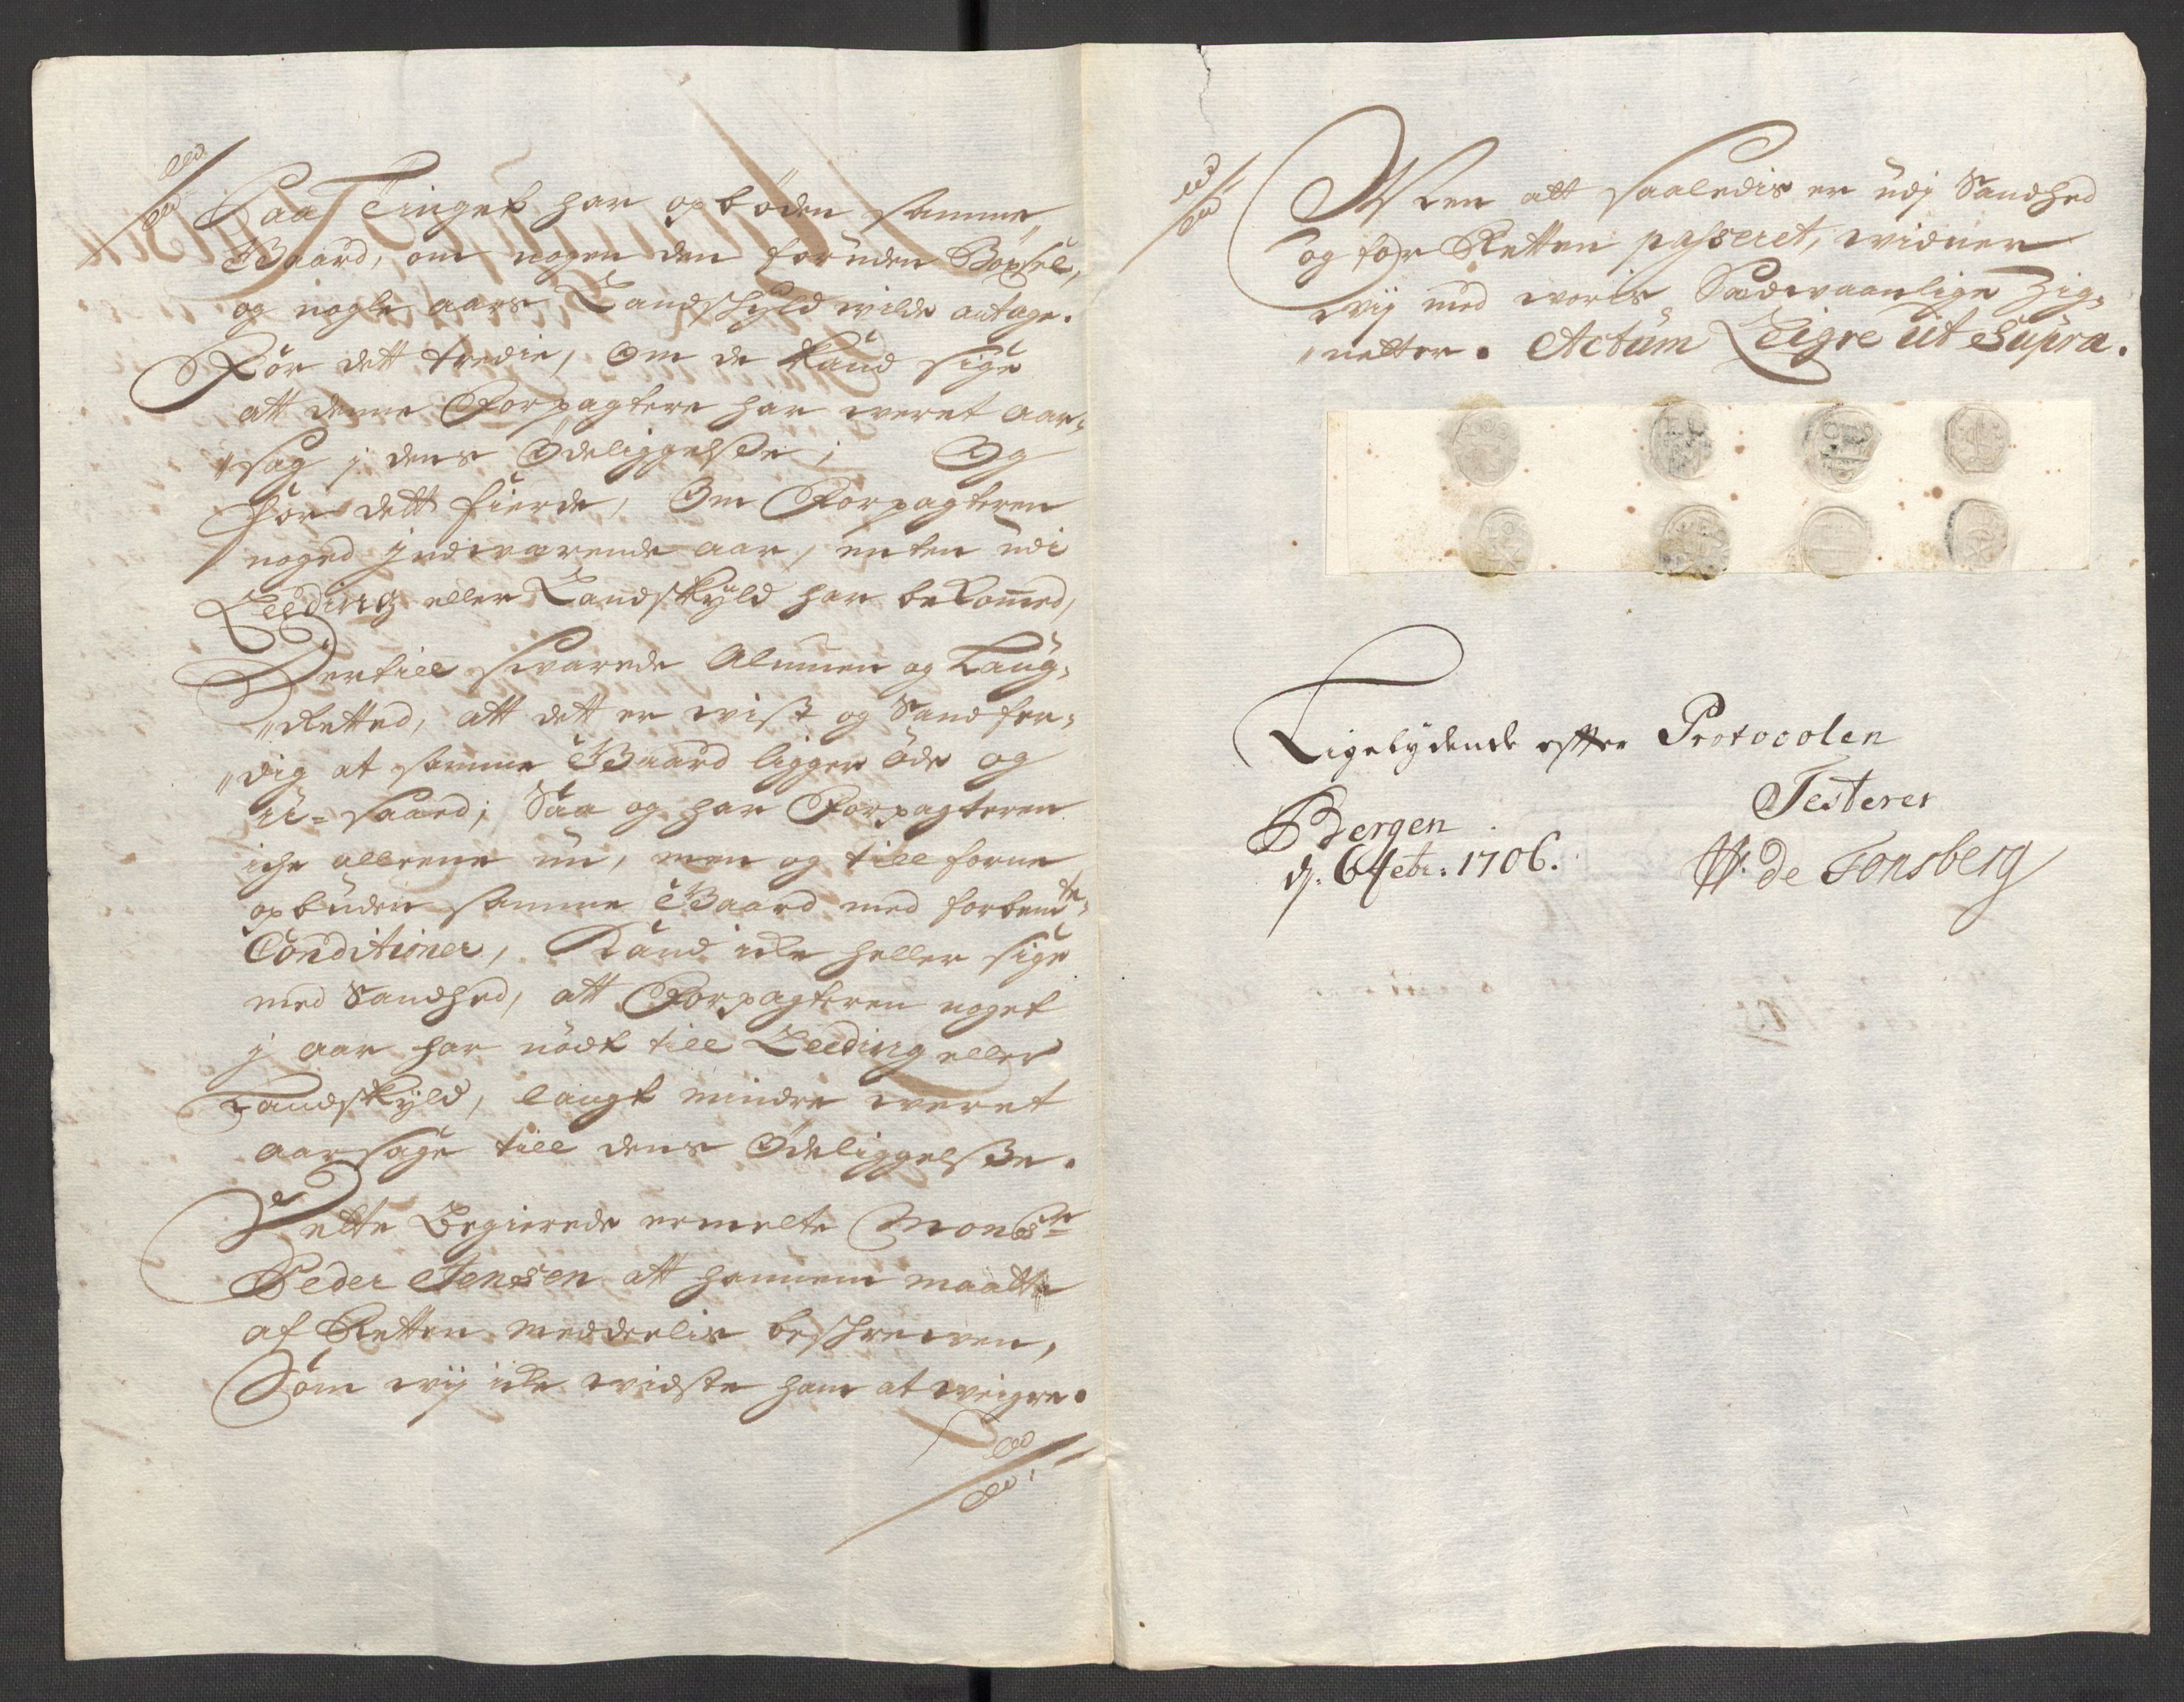 Paa Tinget har opböden samme
Gaard, om nogen den foruden Böxsel,
og nogle aars Landschyld wilde antage.
For dett tredie, Om de kand sige
att denne Forpagtere har weret aar-
sag j dens Ödeliggelsse; Og
For dett fierde, Om Forpagteren
noged jndwærende aar, enten udi
Leeding eller Landskyld har bekommed,
Dertill swarede Almuen og Laug-
Retted, att dett er wist og Sandfer-
dig at samme Gaard ligger öde og
u-saaed; Saa og har Forpagteren
iche alleene nu, men og till forne
opbuden samme Gaard med forbem.te
Conditioner, Kand icke heller sige
med Sandhed, att Forpagteren noget
j aar har nödt till Leeding eller
Landskyld, langt mindre weret
aarsage till dens Ödeliggelsse.
Dette Begierede ermelte Monsr
Peder Jenssen att hannem maatte
af Retten meddelis beschrewen,
Som wij icke widste ham at weigre.
Dend att saaledis er udj Sandhed
og for Retten passeret, widner
wij med woris Sædwaanlige Zig-
netter. Actum Leigre ut Supra.
Ligelydende efter Protocolen
Testerer
Bergen
d. 6 1706. de Tonsberg